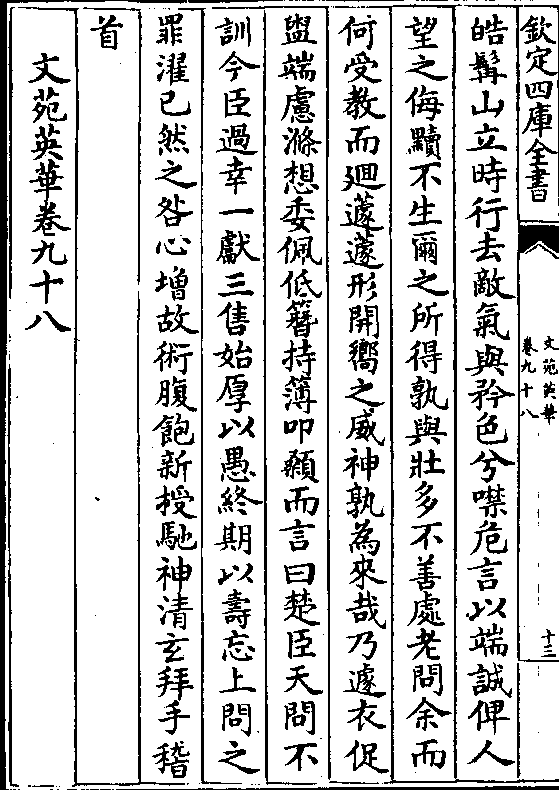 欽定四庫全書
文苑英華
卷九十八
十三
皓髯山立時行去敵氣與矜色兮噤危言以端誠俾人
望之侮黷不生爾之所得孰與壯多不善處老問余而
何受教而廻蘧蘧形開嚮之威神孰為來哉乃遽衣促
盥端慮滌想委佩低簪持簿叩顙而言曰楚臣天問不
訓今臣過幸一獻三售始厚以愚終期以壽忘上問之
罪濯已然之咎心增故術腹飽新授馳神清玄拜手稽
首
文苑英華卷九十八